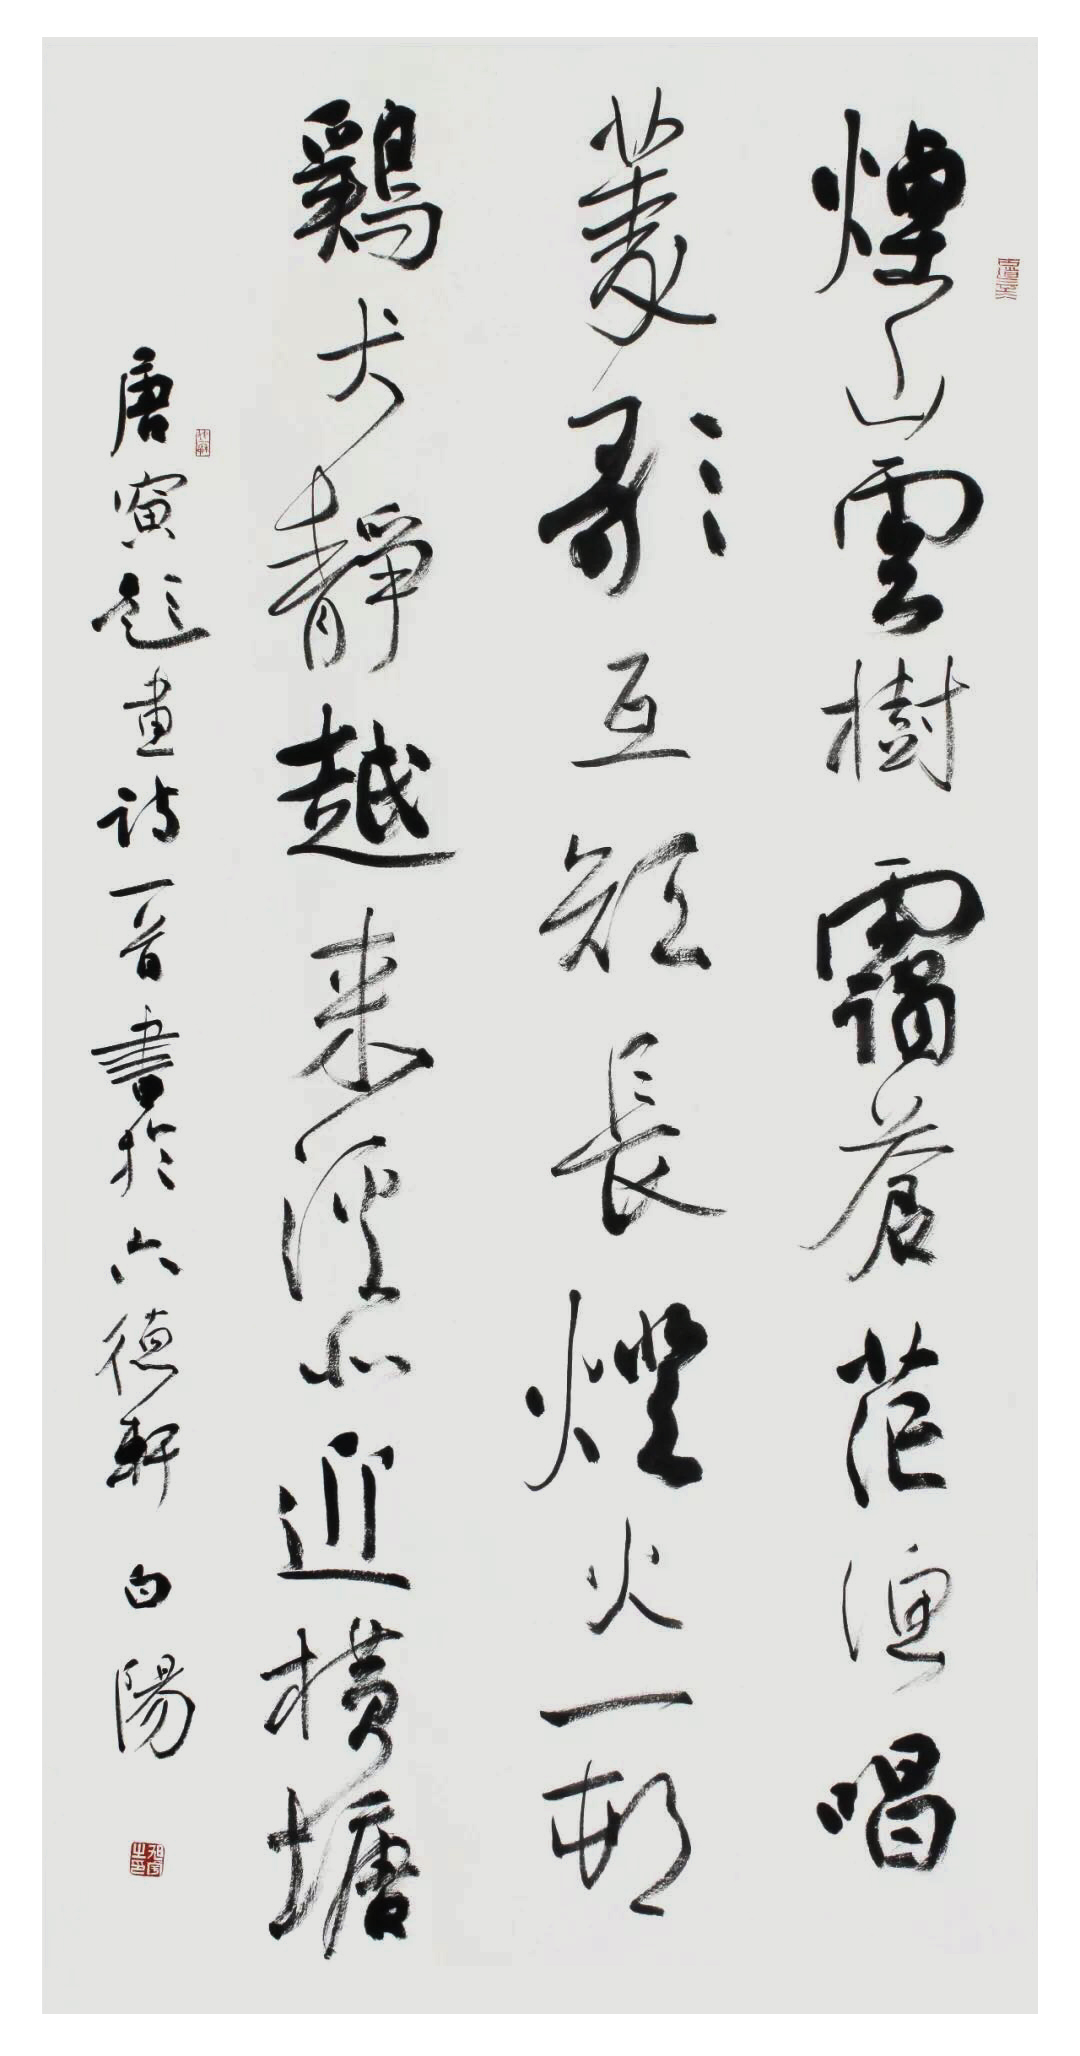 煙山雲樹靄蒼茫漁唱
菱歌互短長燈火一邨
鷄犬靜越来溪北近橫塘
唐寅題畫詩一首書於六德軒 白陽